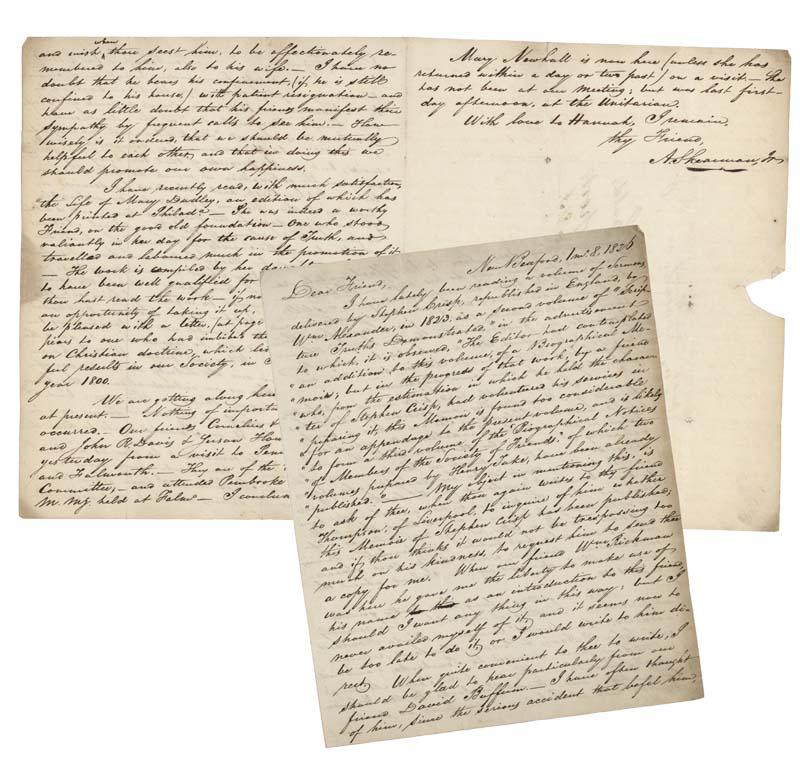 New Bedford, 1 mo 8, 1826
Dear Friend,
I have lately been reading a volume of Sermons
delivered by Stephen Crisp, republished in England, by
Wm. Alexander, in 1823, as a second volume of "Scrip-
ture Truths Demonstrated," in the advertisement
to which, it is observed, "The Editor had contemplated
"an addition to this volume, of a Biographical Me-
"moir; but in the progress of that work, by a friend
"who, from the estimation in which he held the charac-
"ter of Stephen Crisp, had volunteered his services in
"preparing it, this Memoir is found too considerable
"for an appendage to the present volume, and is likely
"to form a third volume of the 'Biographical Notices
"of Members of the Society of Friends,' of which two
"volumes, prepared by Henry Tuke, have been already
"published." — My object in mentioning this, is
to ask of thee, when thou again writes to thy friend
Thompson, of Liverpool, to inquire of him whether
this Memoir of Stephen Crisp has been published;
and if thou thinks it would not be trespassing too
much on his kindness, to request him to send thee
a copy for me. When our friend Wm. Rickman
was here he gave me the liberty to make use of
his name as an introduction to this friend,
should I want any thing in this way; but I
never availed myself of it, and it seems now to
be too late to do it, or I would write to him di-
rect. When quite convenient to thee to write, I
should be glad to hear particularly from our
friend David Buffum. — I have often thought
of him, since the serious accident that befel him,
and wish, when thou seest him, to be affectionately re-
membered to him, also to his wife. — I have no
doubt that he bears his confinement, (if he is still
confined to his house,) with patient resignation — and
have as little doubt that his friends manifest their
sympathy by frequent calls to see him. — How
wisely is it ordered, that we should be mutually
helpful to each other, and that in doing this we
should promote our own happiness.
I have recently read, with much satisfaction,
the Life of Mary Dudley, an edition of which has
been printed at Philada. — She was indeed a worthy
Friend, on the good old foundation — One who stood
valiantly in her day for the cause of Truth, and
travelled and laboured much in the promotion of it
— The work is compiled by her
to have been well qualified for
thou hast read the work — if no
an opportunity of taking it up,
be pleased with a letter, (at page
pious to one who had imbibed
on Christian doctrine, which led
ful results in our Society, in
year 1800.
We are getting along here
at present. — Nothing of importan
occurred. — Our friends Cornelius
and John R. Davis & Susan How
yesterday from a visit to Pem
and Falmouth. — They are of the
Committee, — and attended Pembroke
M. Mg. held at Falm. — I conclud
Mary Newhall is now here (unless she has
returned within a day or two past) on a visit — She
has not been at our meeting; but was last first-
day afternoon, at the Unitarian.
With love to Hannah, I remain
thy Friend,
A. Shearman, Jr